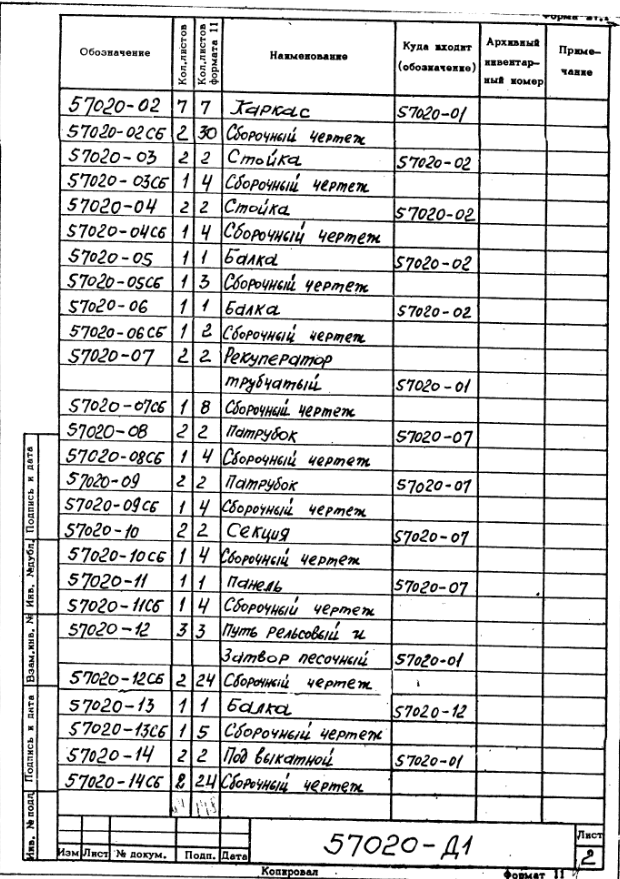 Форма
Обозначение Кол.листов Кол.листов формата 11 Наименование Куда входит (обозначение) Архивный инвентарный номер Примечание
57020-02 7 7 Каркас 57020-01
57020-02СБ 2 30 Сборочный чертеж
57020-03 2 2 Стойка 57020-02
57020-03СБ 1 4 Сборочный чертеж
57020-04 2 2 Стойка 57020-02
57020-04СБ 1 4 Сборочный чертеж
57020-05 1 1 Балка 57020-02
57020-05СБ 1 3 Сборочный чертеж
57020-06 1 1 Балка 57020-02
57020-06СБ 1 2 Сборочный чертеж
57020-07 2 2 Рекуператор
трубчатый 57020-01
57020-07СБ 1 8 Сборочный чертеж
57020-08 2 2 Патрубок 57020-07
57020-08СБ 1 4 Сборочный чертеж
57020-09 2 2 Патрубок 57020-07
57020-09СБ 1 4 Сборочный чертеж
57020-10 2 2 Секция 57020-07
57020-10СБ 1 4 Сборочный чертеж
57020-11 1 1 Панель 57020-07
57020-11СБ 1 4 Сборочный чертеж
57020-12 3 3 Путь рельсовый и
Затвор песочный 57020-01
57020-12СБ 2 24 Сборочный чертеж
57020-13 1 1 Балка 57020-12
57020-13СБ 1 5 Сборочный чертеж
57020-14 2 2 Под выкатной 57020-01
57020-14СБ 2 24 Сборочный чертеж
Подпись и дата
Инв. №дубл.
Взам.инв. №
Подпись и дата
Инв. №подл
Изм Лист № докум. Подп. Дата
57020-Д1
Лист
2
Копировал Формат 11